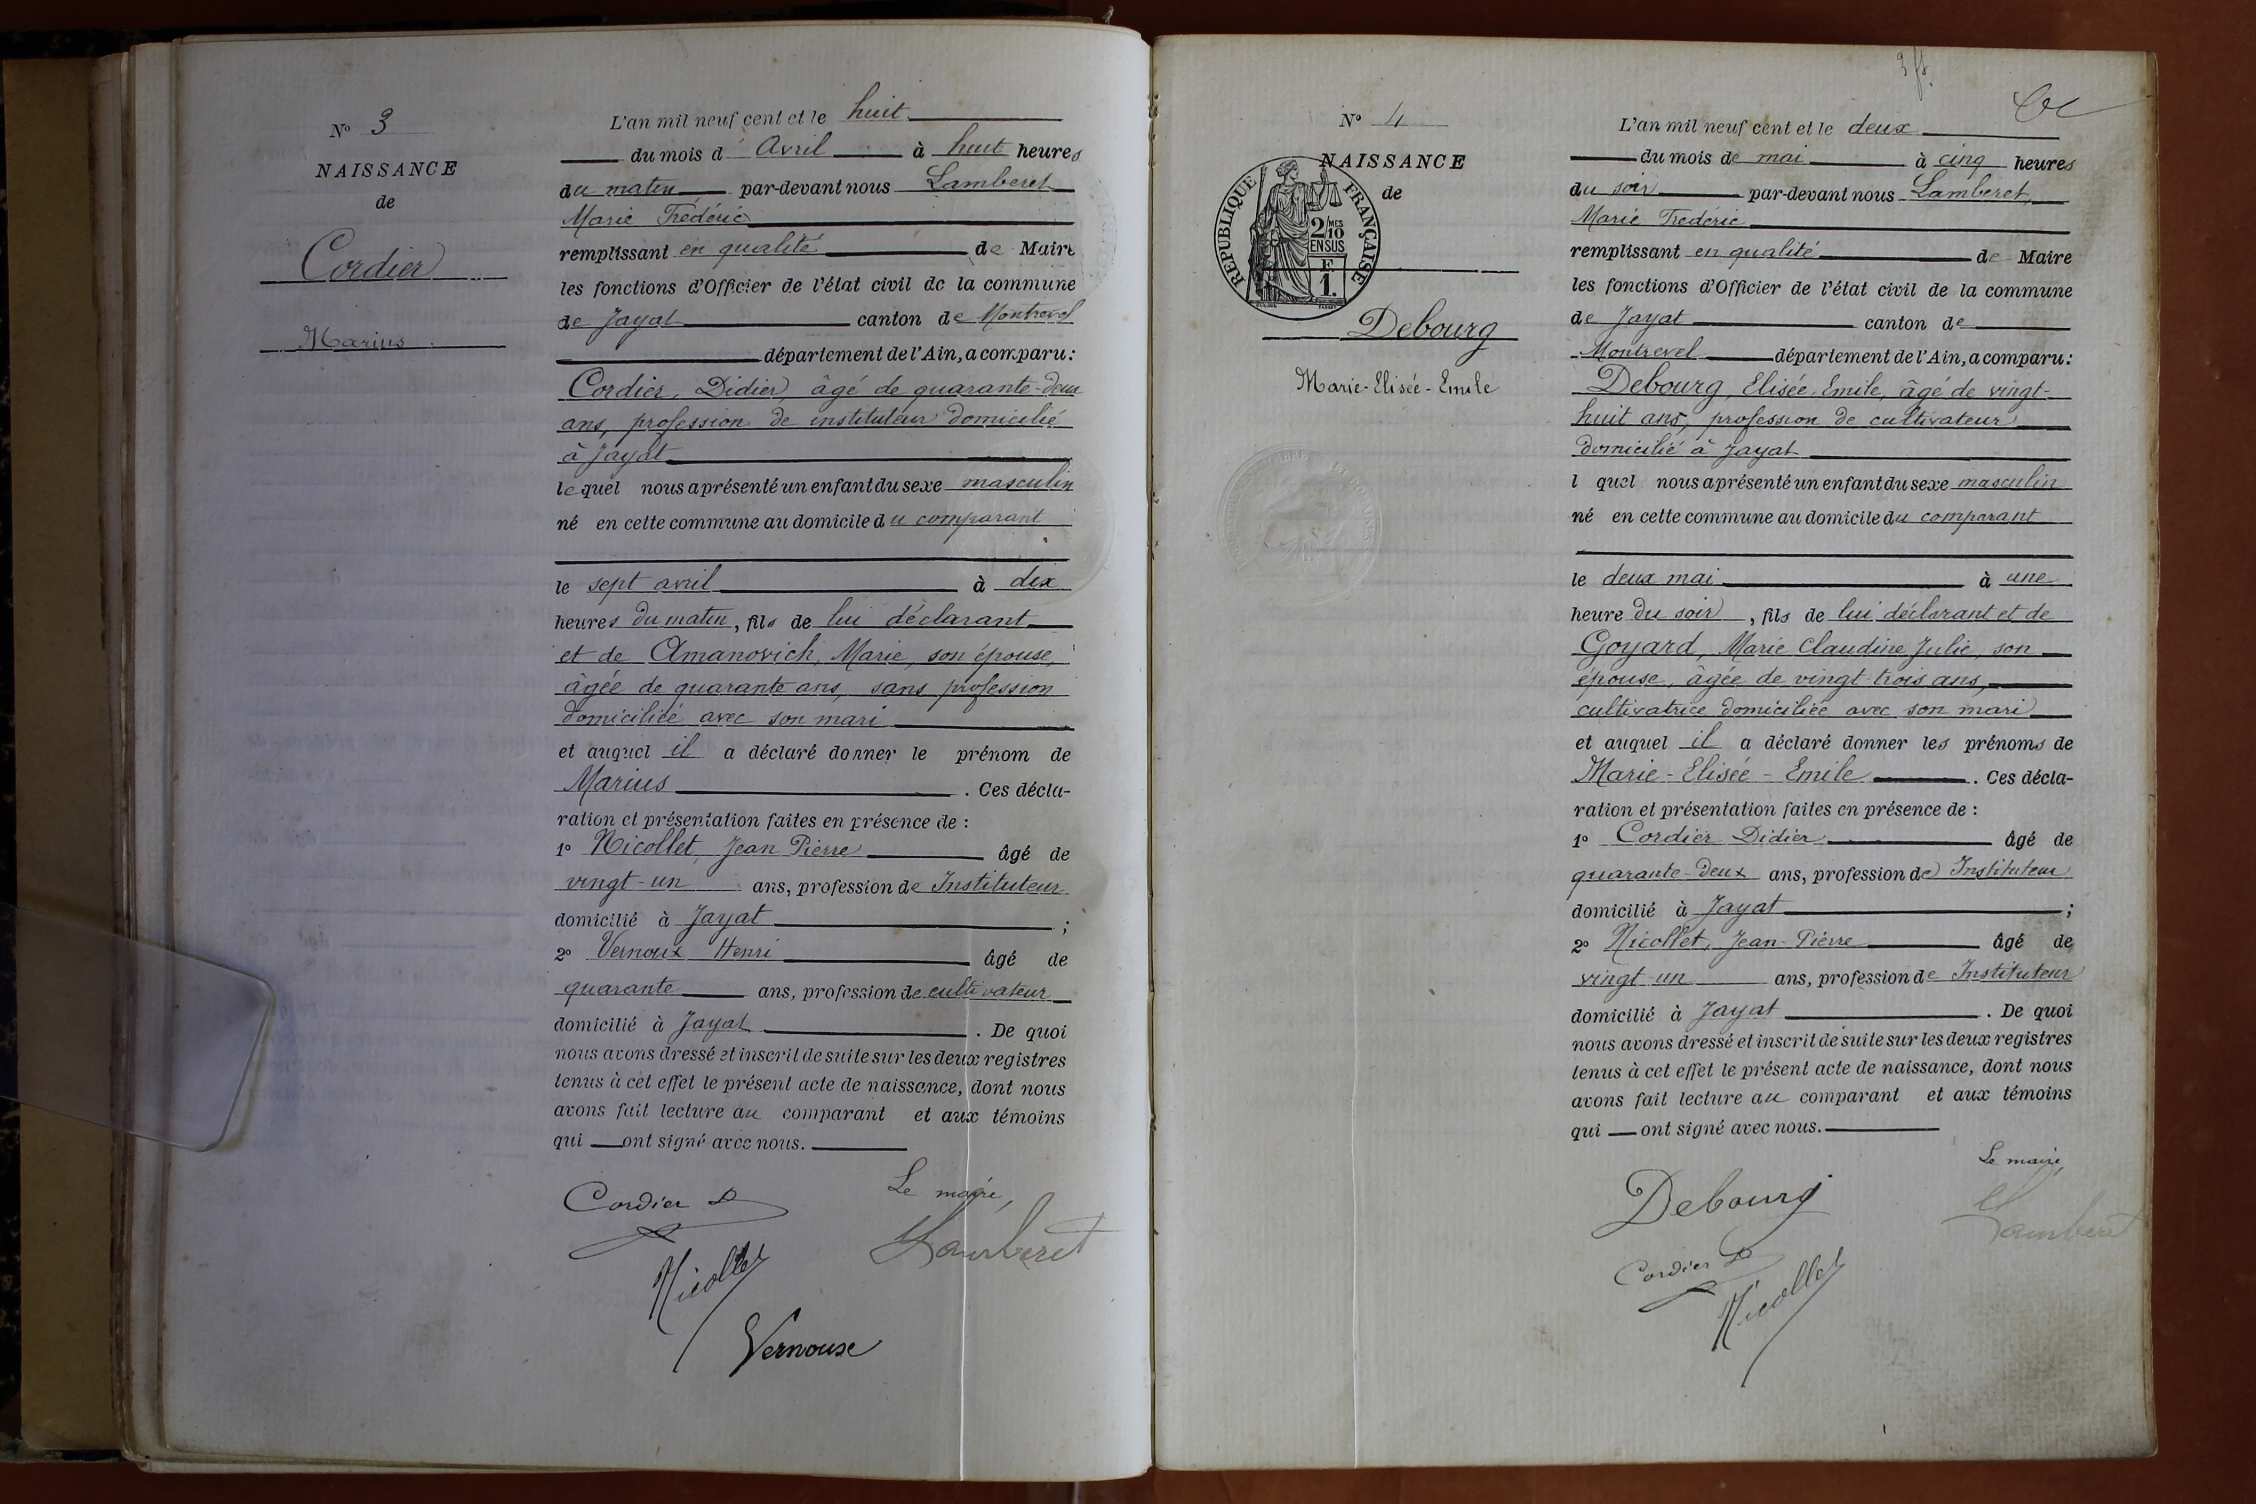 N° 3
NAISSANCE
de
Cordier
Marius
L'an mil neuf cent et le huit
du mois d' Avril à huit heures
du matin par-devant nous Lamberet
Marie Frédéric
remplissant en qualité de Maire
les fonctions d'Officier de l'état civil de la commune
de Jayat canton de Montrevel
département de l'Ain, a comparu :
Cordier, Didier, âgé de quarante-deux
ans, profession de instituteur domicilié
à Jayat
lequel nous a présenté un enfant du sexe masculin
né en cette commune au domicile du comparant
le sept avril à dix
heures du matin, fils de lui déclarant
et de Amanovich, Marie, son épouse,
âgée de quarante ans, sans profession
domiciliée avec son mari
et auquel il a déclaré donner le prénom de
Marius . Ces décla-
ration et présentation faites en présence de :
1° Nicollet, Jean Pierre âgé de
vingt-un ans, profession de Instituteur
domicilié à Jayat ;
2° Vernoux Henri âgé de
quarante ans, profession de cultivateur
domicilié à Jayat . De quoi
nous avons dressé et inscrit de suite sur les deux registres
tenus à cet effet le présent acte de naissance, dont nous
avons fait lecture au comparant et aux témoins
qui ont signé avec nous.
Cordier D
Le maire,
Lamberet
Nicollet
Vernoux
N° 4
NAISSANCE
de
RÉPUBLIQUE FRANÇAISE
2/10 MES
EN SUS
F
1.
Debourg
Marie-Elisée-Emile
3 ft
L'an mil neuf cent et le deux
du mois de mai à cinq heures
du soir par-devant nous Lamberet,
Marie Frédéric
remplissant en qualité de Maire
les fonctions d'Officier de l'état civil de la commune
de Jayat canton de
Montrevel département de l'Ain, a comparu :
Debourg, Elisée, Emile, âgé de vingt-
huit ans, profession de cultivateur
domicilié à Jayat
l quel nous a présenté un enfant du sexe masculin
né en cette commune au domicile du comparant
le deux mai à une
heure du soir, fils de lui déclarant et de
Goyard, Marie Claudine Julie, son
épouse, âgée de vingt-trois ans,
cultivatrice domiciliée avec son mari
et auquel il a déclaré donner les prénoms de
Marie-Elisée-Emile . Ces décla-
ration et présentation faites en présence de :
1° Cordier Didier âgé de
quarante-deux ans, profession de Instituteur
domicilié à Jayat ;
2° Nicollet, Jean-Pierre âgé de
vingt-un ans, profession de Instituteur
domicilié à Jayat . De quoi
nous avons dressé et inscrit de suite sur les deux registres
tenus à cet effet le présent acte de naissance, dont nous
avons fait lecture au comparant et aux témoins
qui ont signé avec nous.
Le maire,
Debourg
Lamberet
Cordier D
Nicollet